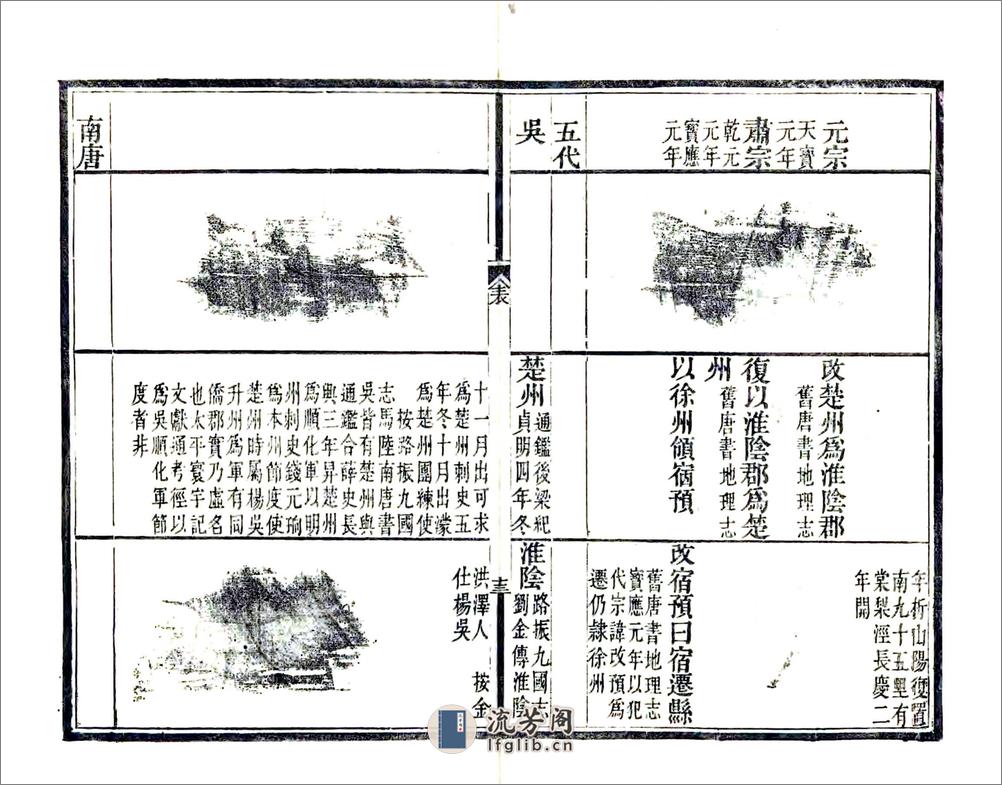 元宗
天寶
元年
肅宗
乾元
元年
寶應
元年
五代
吳
改楚州爲淮陰郡
舊唐書地理志
復以淮陰郡爲楚
州
舊唐書地理志
以徐州領宿預
楚州
通鑑後梁紀
貞明四年冬
年析山陽復置
南九十五里有
棠梨涇長慶二
年開
改宿預曰宿遷縣
舊唐書地理志
寶應元年以犯
代宗諱改預爲
遷仍隸徐州
淮陰
路振九國志
劉金傳淮陰
表
十三
南唐
十一月出可求
爲楚州刺史五
年冬十月出濛
爲楚州團練使
按路振九國
志馬陸南唐書
吳皆有楚州與
通鑑合薛史長
興三年昇楚州
爲順化軍以明
州刺史錢元珦
爲本州節度使
楚州時屬楊吳
升州爲軍有同
僑郡實乃虛名
也太平寰宇記
文獻通考徑以
爲吳順化軍節
度者非
洪澤人 按金
仕楊吳
流芳阁
lfglib.cn